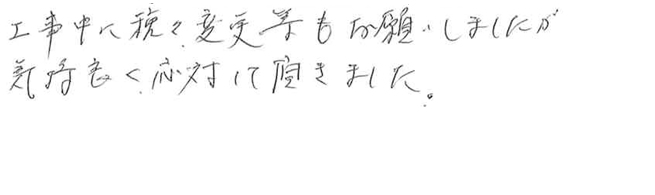 工事中に種々変更等もお願いしましたが
気持良く応対して頂きました。